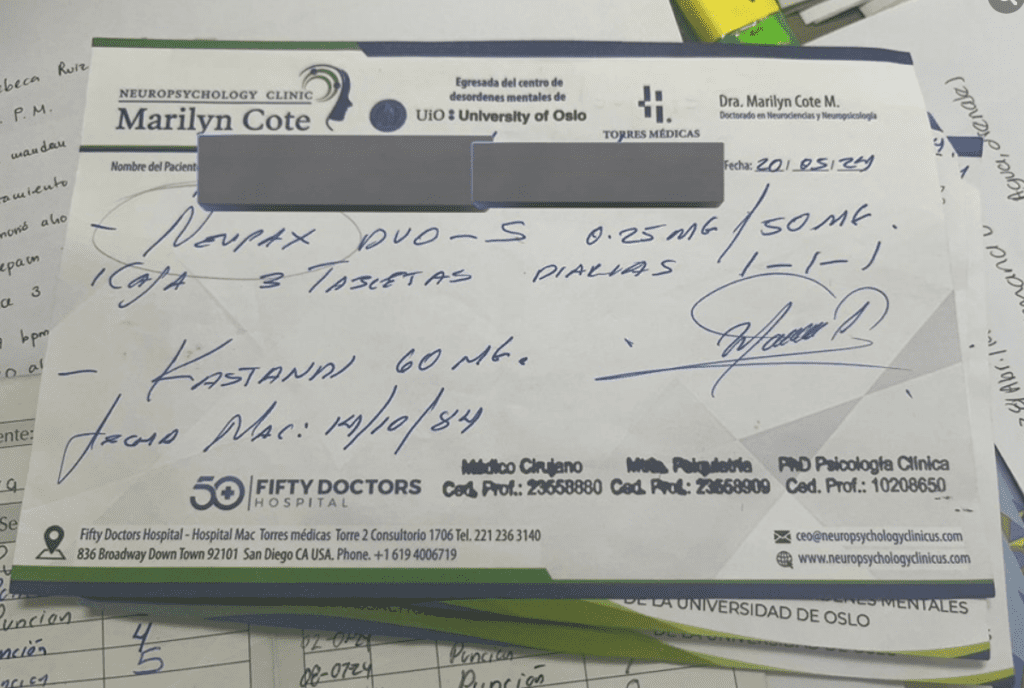 ebeca Ruiz
P.M.
mandan
amiento
epam
a 3
bpm
NEUROPSYCHOLOGY CLINIC
Marilyn Cote
Egresada del centro de
desordenes mentales de
UiO : University of Oslo
TORRES MÉDICAS
Dra. Marilyn Cote M.
Doctorado en Neurociencias y Neuropsicología
Nombre del Pacient
Fecha: 20/05/24
- NEUPAX DUO-S 0.25 MG/50 MG.
1 CAJA 3 TABLETAS DIARIAS 1-1-1
- KASTANDI 60 MG.
FECHA NAC: 14/10/84
50 FIFTY DOCTORS
HOSPITAL
Médico Cirujano
Ced. Prof.: 23558880
Mtría. Psiquiatría
Ced. Prof.: 23558909
PhD Psicología Clínica
Ced. Prof.: 10208650
Fifty Doctors Hospital - Hospital Mac Torres médicas Torre 2 Consultorio 1706 Tel. 221 236 3140
836 Broadway Down Town 92101 San Diego CA USA. Phone. +1 619 4006719
ceo@neuropsychologyclinicus.com
www.neuropsychologyclinicus.com
ente:
Se
DE LA UNIVERSIDAD DE OSLO
ENES MENTALES
unción
4
02-07-24
nción
5
08-07-24
Punción
Punción